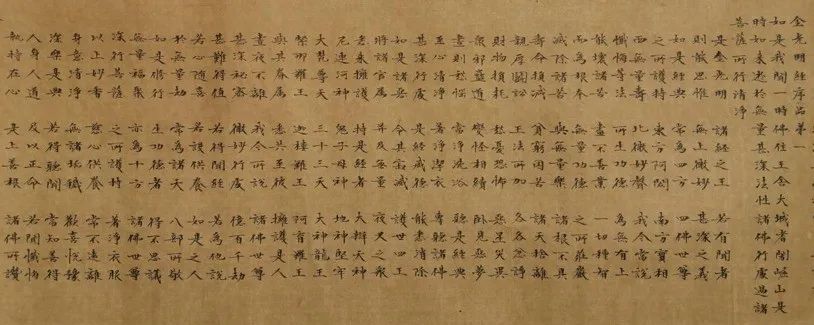 金光明經序品第一
如是我聞一時佛住王舍大城耆闍崛山是
時如來遊於無量甚深法性諸佛行處過諸
菩薩所行清淨
是金光明 諸經之王 若有聞者
則能思惟 無上微妙 甚深之義
如是經典 常為四方 四佛世尊
之所護持 東方阿閦 南方寶相
西無量壽 北微妙聲 我今當說
懺悔等法 所生功德 為無有上
能壞諸苦 盡不善業 一切種智
而為根本 無量功德 之所莊嚴
滅除諸苦 與無量樂 諸根不具
壽命損減 貧窮困苦 諸天捨離
親厚鬪訟 王法所加 各各忿諍
財物損耗 愁憂恐怖 惡星災異
眾邪蠱道 變怪相續 臥見惡夢
晝則愁惱 當淨洗浴 聽是經典
至心清淨 著淨潔衣 專聽諸佛
甚深行處 是經威德 能悉消除
如是諸惡 令其寂滅 護世四王
將諸官屬 并及無量 夜叉之眾
悉來擁護 持是經者 大辯天神
尼連河神 鬼子母神 地神堅牢
大梵尊天 三十三天 大神龍王
緊那羅王 迦樓羅王 阿脩羅王
與其眷屬 悉共至彼 擁護是人
晝夜不離 我今所說 諸佛世尊
甚深祕密 微妙行處 億百千劫
甚難得值 若得聞經 若為他說
若心隨喜 若設供養 如是之人
於無量劫 常為諸天 八部所敬
如是修行 生功德者 得不思議
無量福聚 亦為十方 諸佛世尊
深行菩薩 之所護持 著淨衣服
以上妙香 慈心供養 常不遠離
身意清淨 無諸垢穢 歡喜悅豫
深樂是典 若得聽聞 當知善得
人身人道 及以正命 若聞懺悔
執持在心 是上善根 諸佛所讚